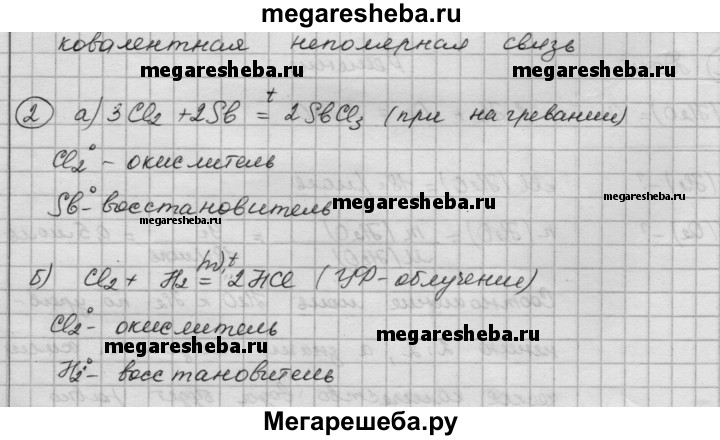 megaresheba.ru
ковалентная неполярная связь
megaresheba.ru megaresheba.ru
2 а) 3Cl2 + 2Sb =t 2SbCl3 (при нагревании)
Cl2° - окислитель
Sb° - восстановитель
megaresheba.ru megaresheba.ru megaresheba.ru
б) Cl2 + H2 =hν,t 2HCl (УФ-облучение)
Cl2° - окислитель
megaresheba.ru megaresheba.ru
H2° - восстановитель
Мегарешеба.ру